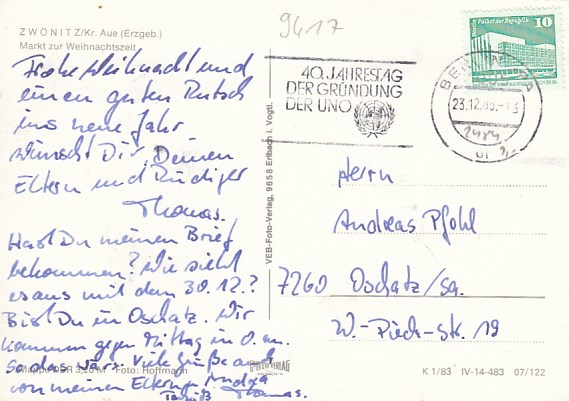 ZWÖNITZ/Kr. Aue (Erzgeb.)
Markt zur Weihnachtszeit
Frohe Weihnacht und
einen guten Rutsch
ins neue Jahr
wünscht Dir, Deinen
Eltern und Rüdiger
Thomas.
Hast Du meinen Brief
bekommen? Wie sieht
es aus mit dem 30.12.?
Bist Du in Oschatz. Wir
kommen gegen Mittag in O. an.
So das wärs. Viele Grüße auch
von meinen Eltern,
Thomas.
Mappe DDR Foto: Hoffmann
VEB-Foto-Verlag, 9658 Erlbach i. Vogtl.
9417
40. JAHRESTAG
DER GRÜNDUNG
DER UNO
23.12.85
10
Herrn
Andreas Pfohl
7260 Oschatz/Sa.
W.-Pieck-Str. 19
K 1/83 IV-14-483 07/122